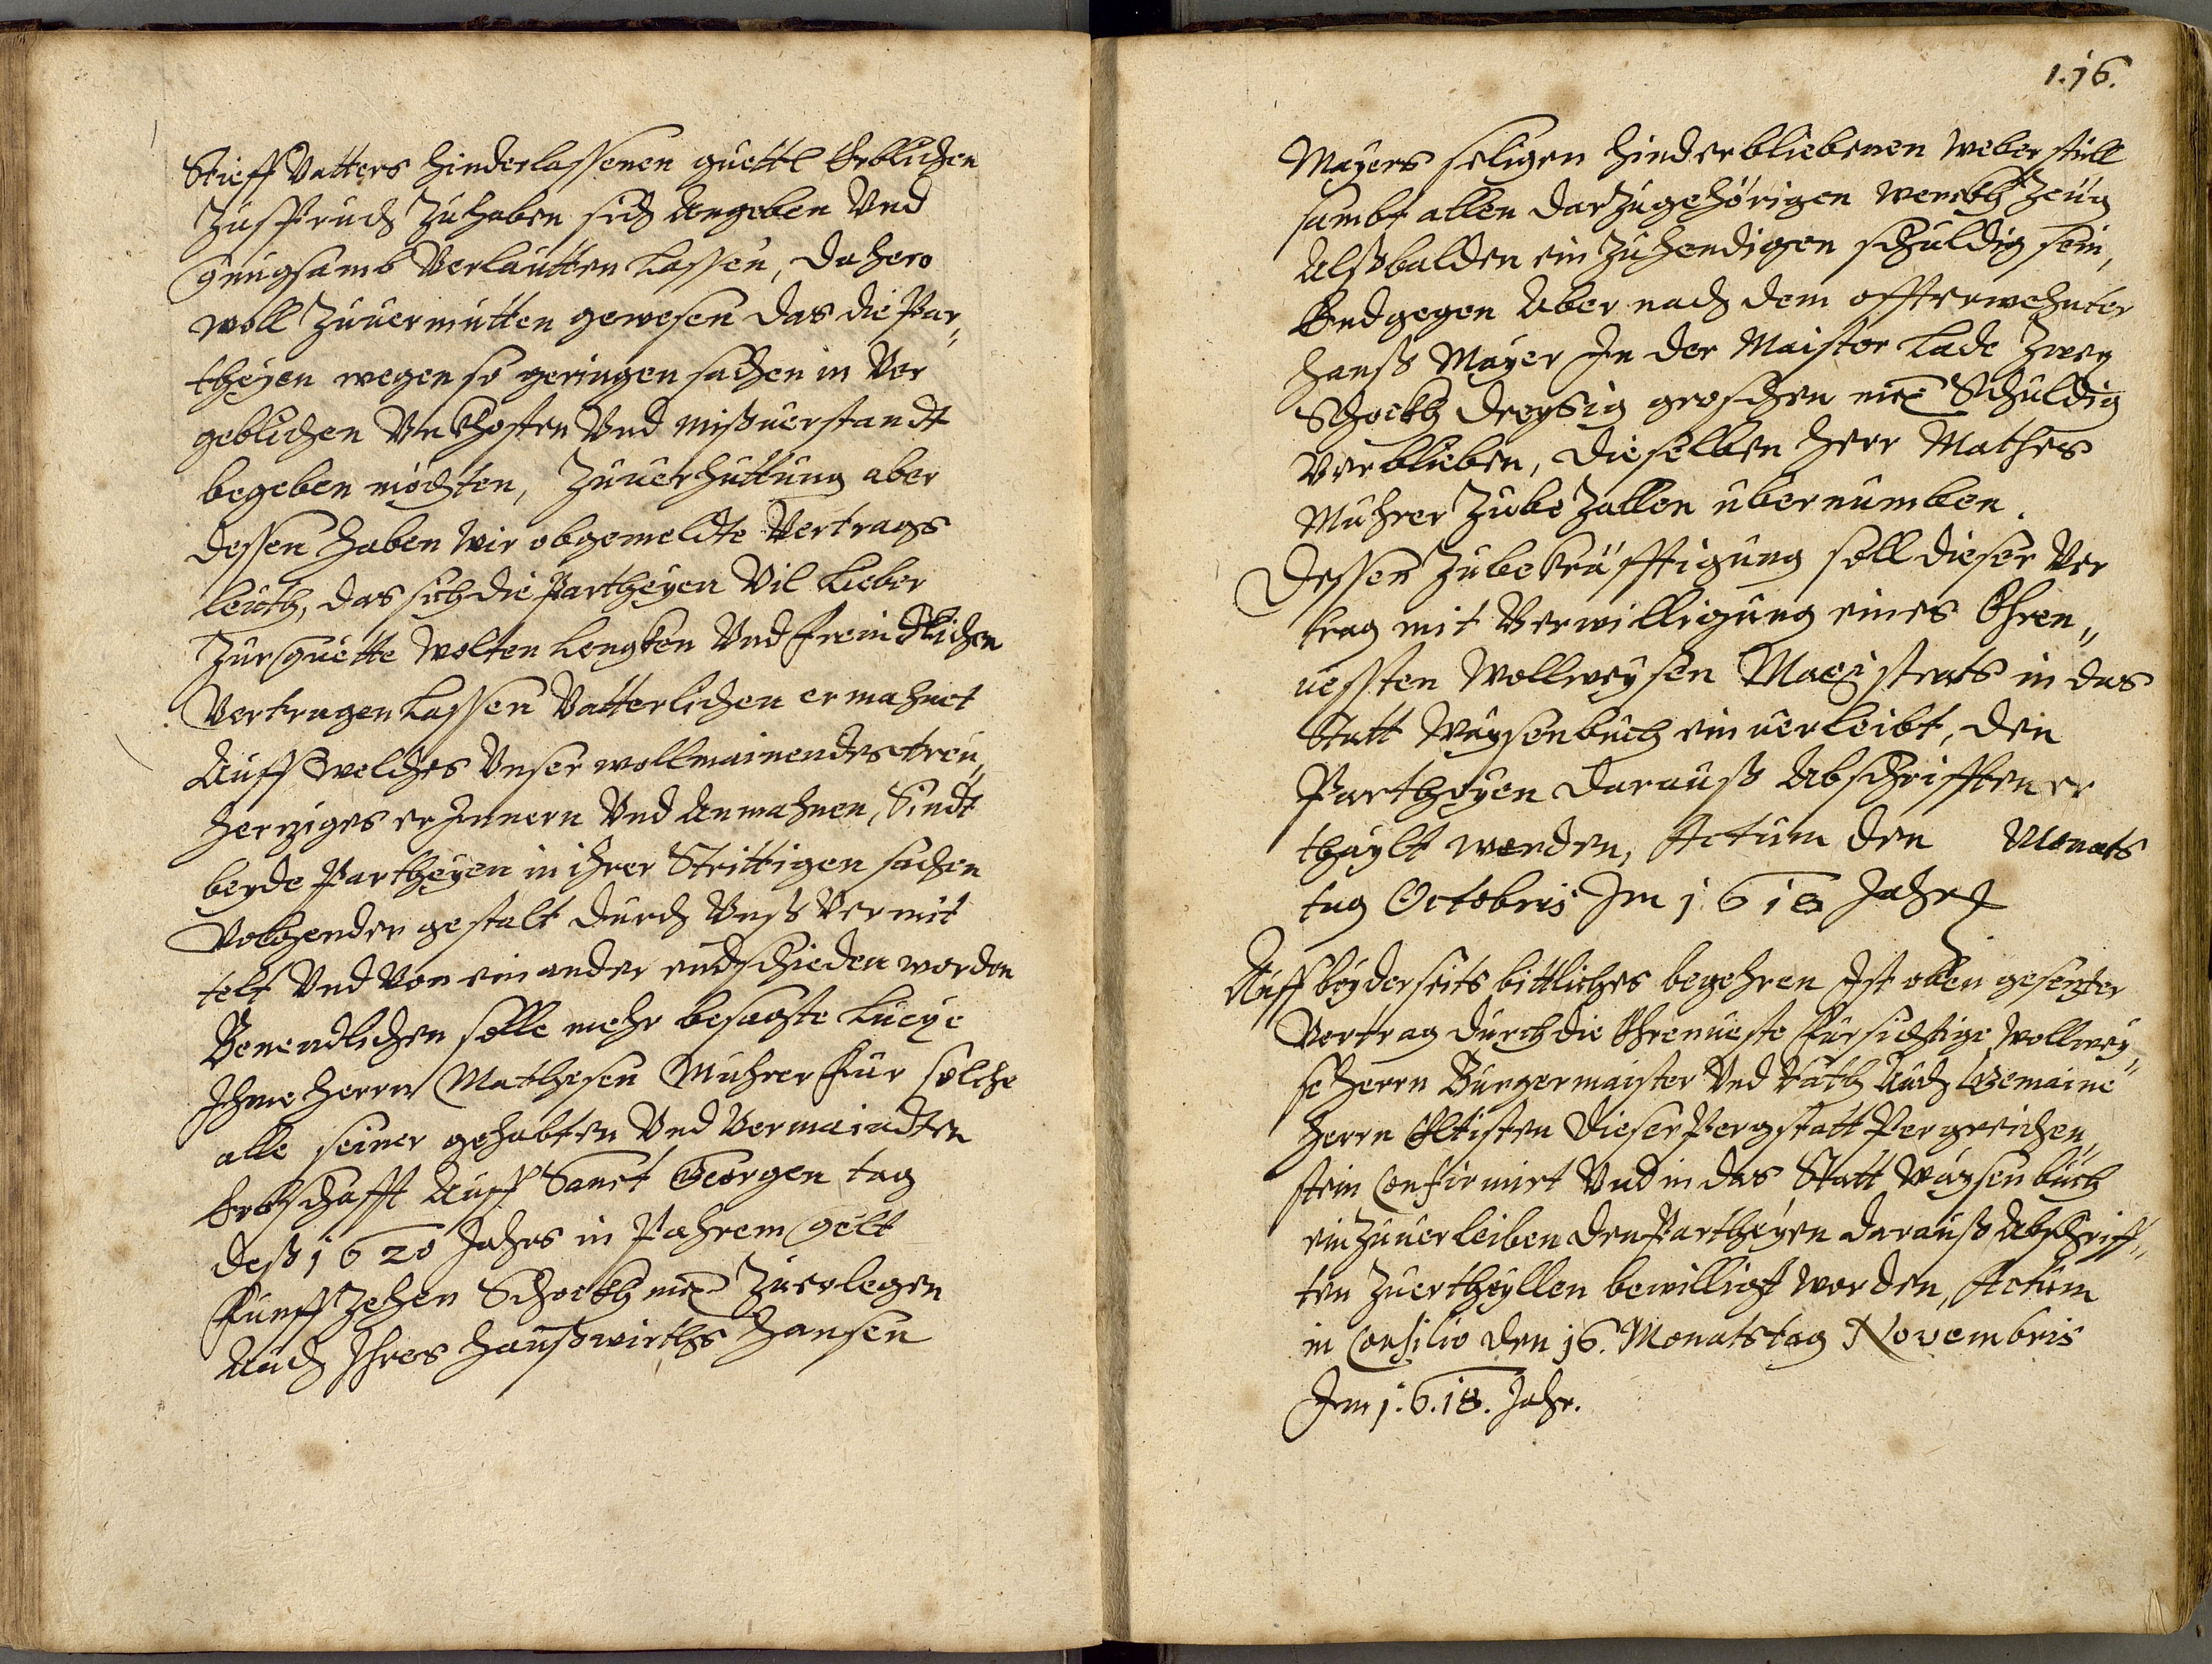 Stieff Vatters hinderlassenen guettl Erblichen
Zuspruch Zuhaben sich Angeben Vnd
gnugsamb Verlautten Lassen, dahero
woll Zuuermutten gewesen das die Par„
theyen wegen so geringen sachen in Ver
geblichen Vnkhosten Vnd mißuerstandt
begeben möchten, Zuuerhuttung aber
dessen haben wir obgemeldte Vertrags
leüth, das sich die Partheyen Vil Lieber
Zur guette wolten Lengken Vnd freindtlichen
Vertragen Lassen Vatterlichen ermahnet
Auff welches Vnser wollmainendes treu„
herziges erJnnern Vnd Anmahnen, Sindt
beyde Partheyen in ihrer Strittigen sachen
Volgender gestalt durch Vnß Vermit
telt Vnd Von einander endschieden worden
Benendlichen solle mehr besagte Lucye
Jhme herrn Mathesen Muhrer für solche
alle seiner gehabten Vnd Vermaindten
Erbschafft Auff Sanct Georgen tag
deß 1620 Jahrs in Pahrem gelt
funffzehen Schockh mei Zuerlegen
Auch Jhres haußwirths hansen
1.16.
Mayers seligen hinderbliebenen weber stull
sambt allen darzugehörigen werckh Zeüg
Alßbalden ein Zuhendigen schuldig sein,
Endgegen Aber nach dem offterwehnter
hanß Mayer Jn der Maister Lade Zwey
Schockh dreysig groschen mei Schuldig
Verblieben, dieselben herr Mathes
Muhrer Zubezallen übernumben.
Dessen Zubekräfftigung soll dieser Ver
trag mit Verwilligung eines Ehren„
uesten Wollweysen Magistrats in das
Statt Waysenbuch ein uerleibt, den
Partheyen darauß Abschrifften er
thaylt werden, Actum den Monats
tag Octobris Jm 1618 Jahr
Auff beyderseits bittliches begehren Jst oben gesezter
Vertrag durch die Ehrnueste fürsichtige wollwey„
se herrn Burgermaister Vnd Rath Auch Gemaine
herrn Eltisten dieser Pergstatt Pergreichen„
stein Confirmirt Vnd in das Statt Waysenbuch
einzuuerleiben den Partheyen darauß Abschriff„
ten Zuertheyllen bewilligt worden, Actum
in Consilio den 16. Monatstag Novembris
Jm 1.6.18. Jahr.